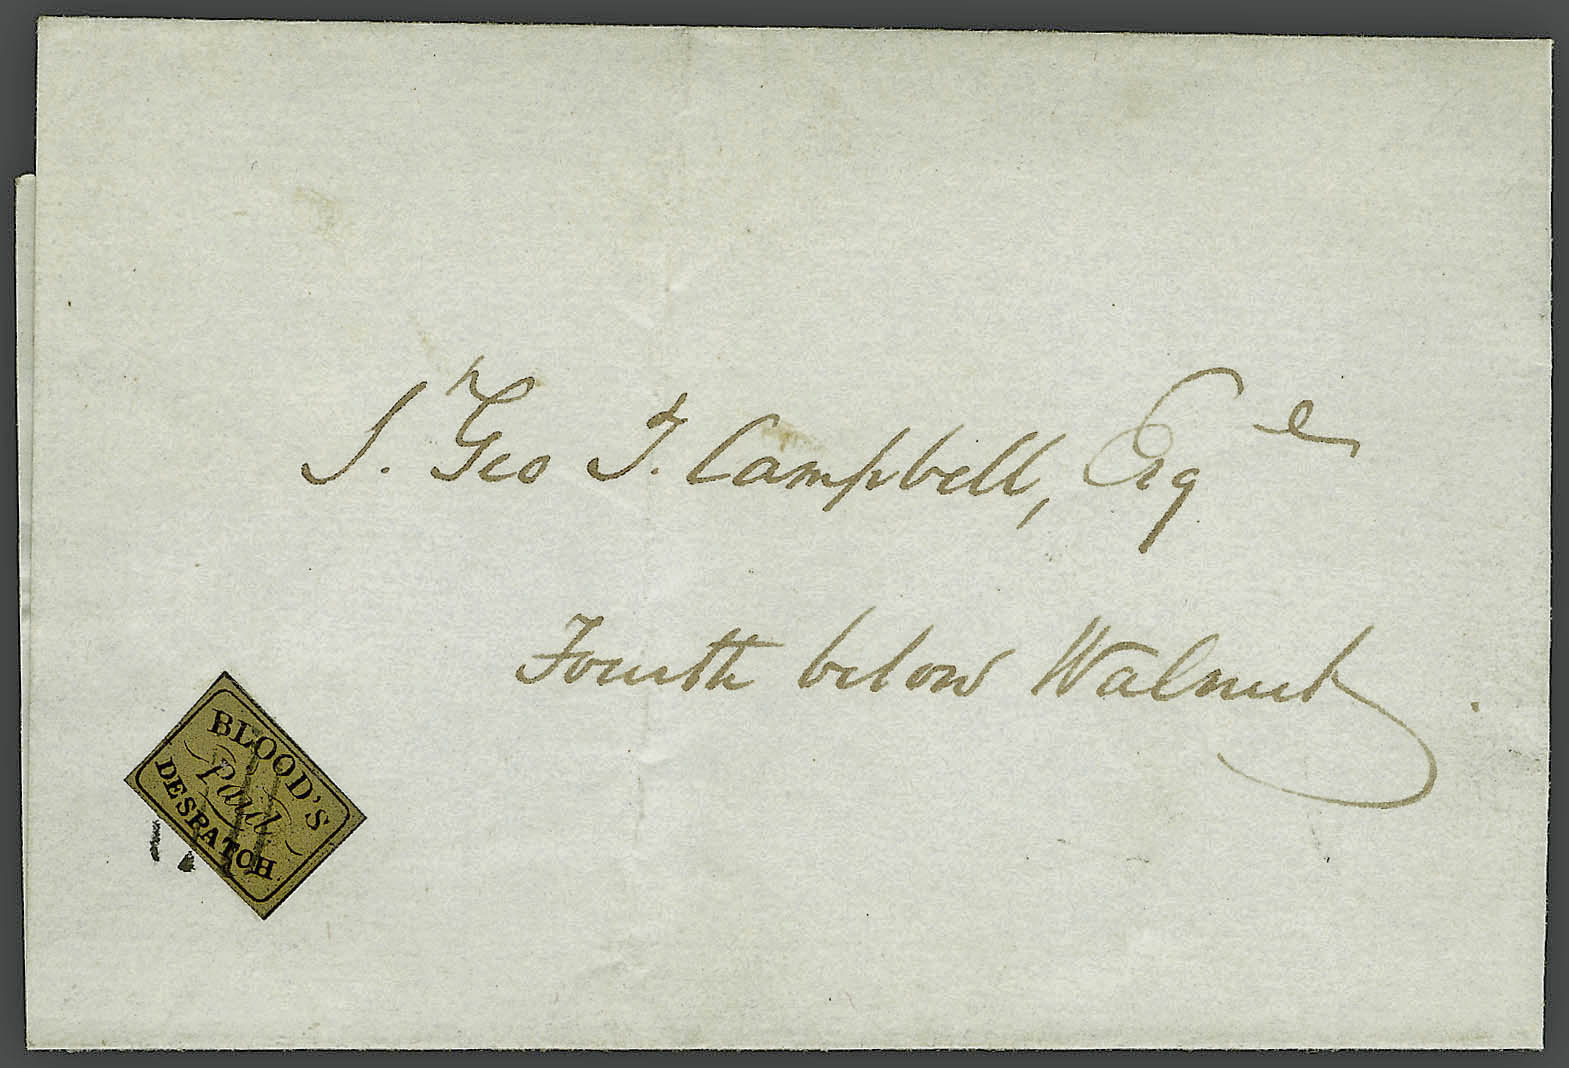 J. Geo T. Campbell, Esqe
Fourth below Walnut
BLOOD'S
Paid
DESPATCH